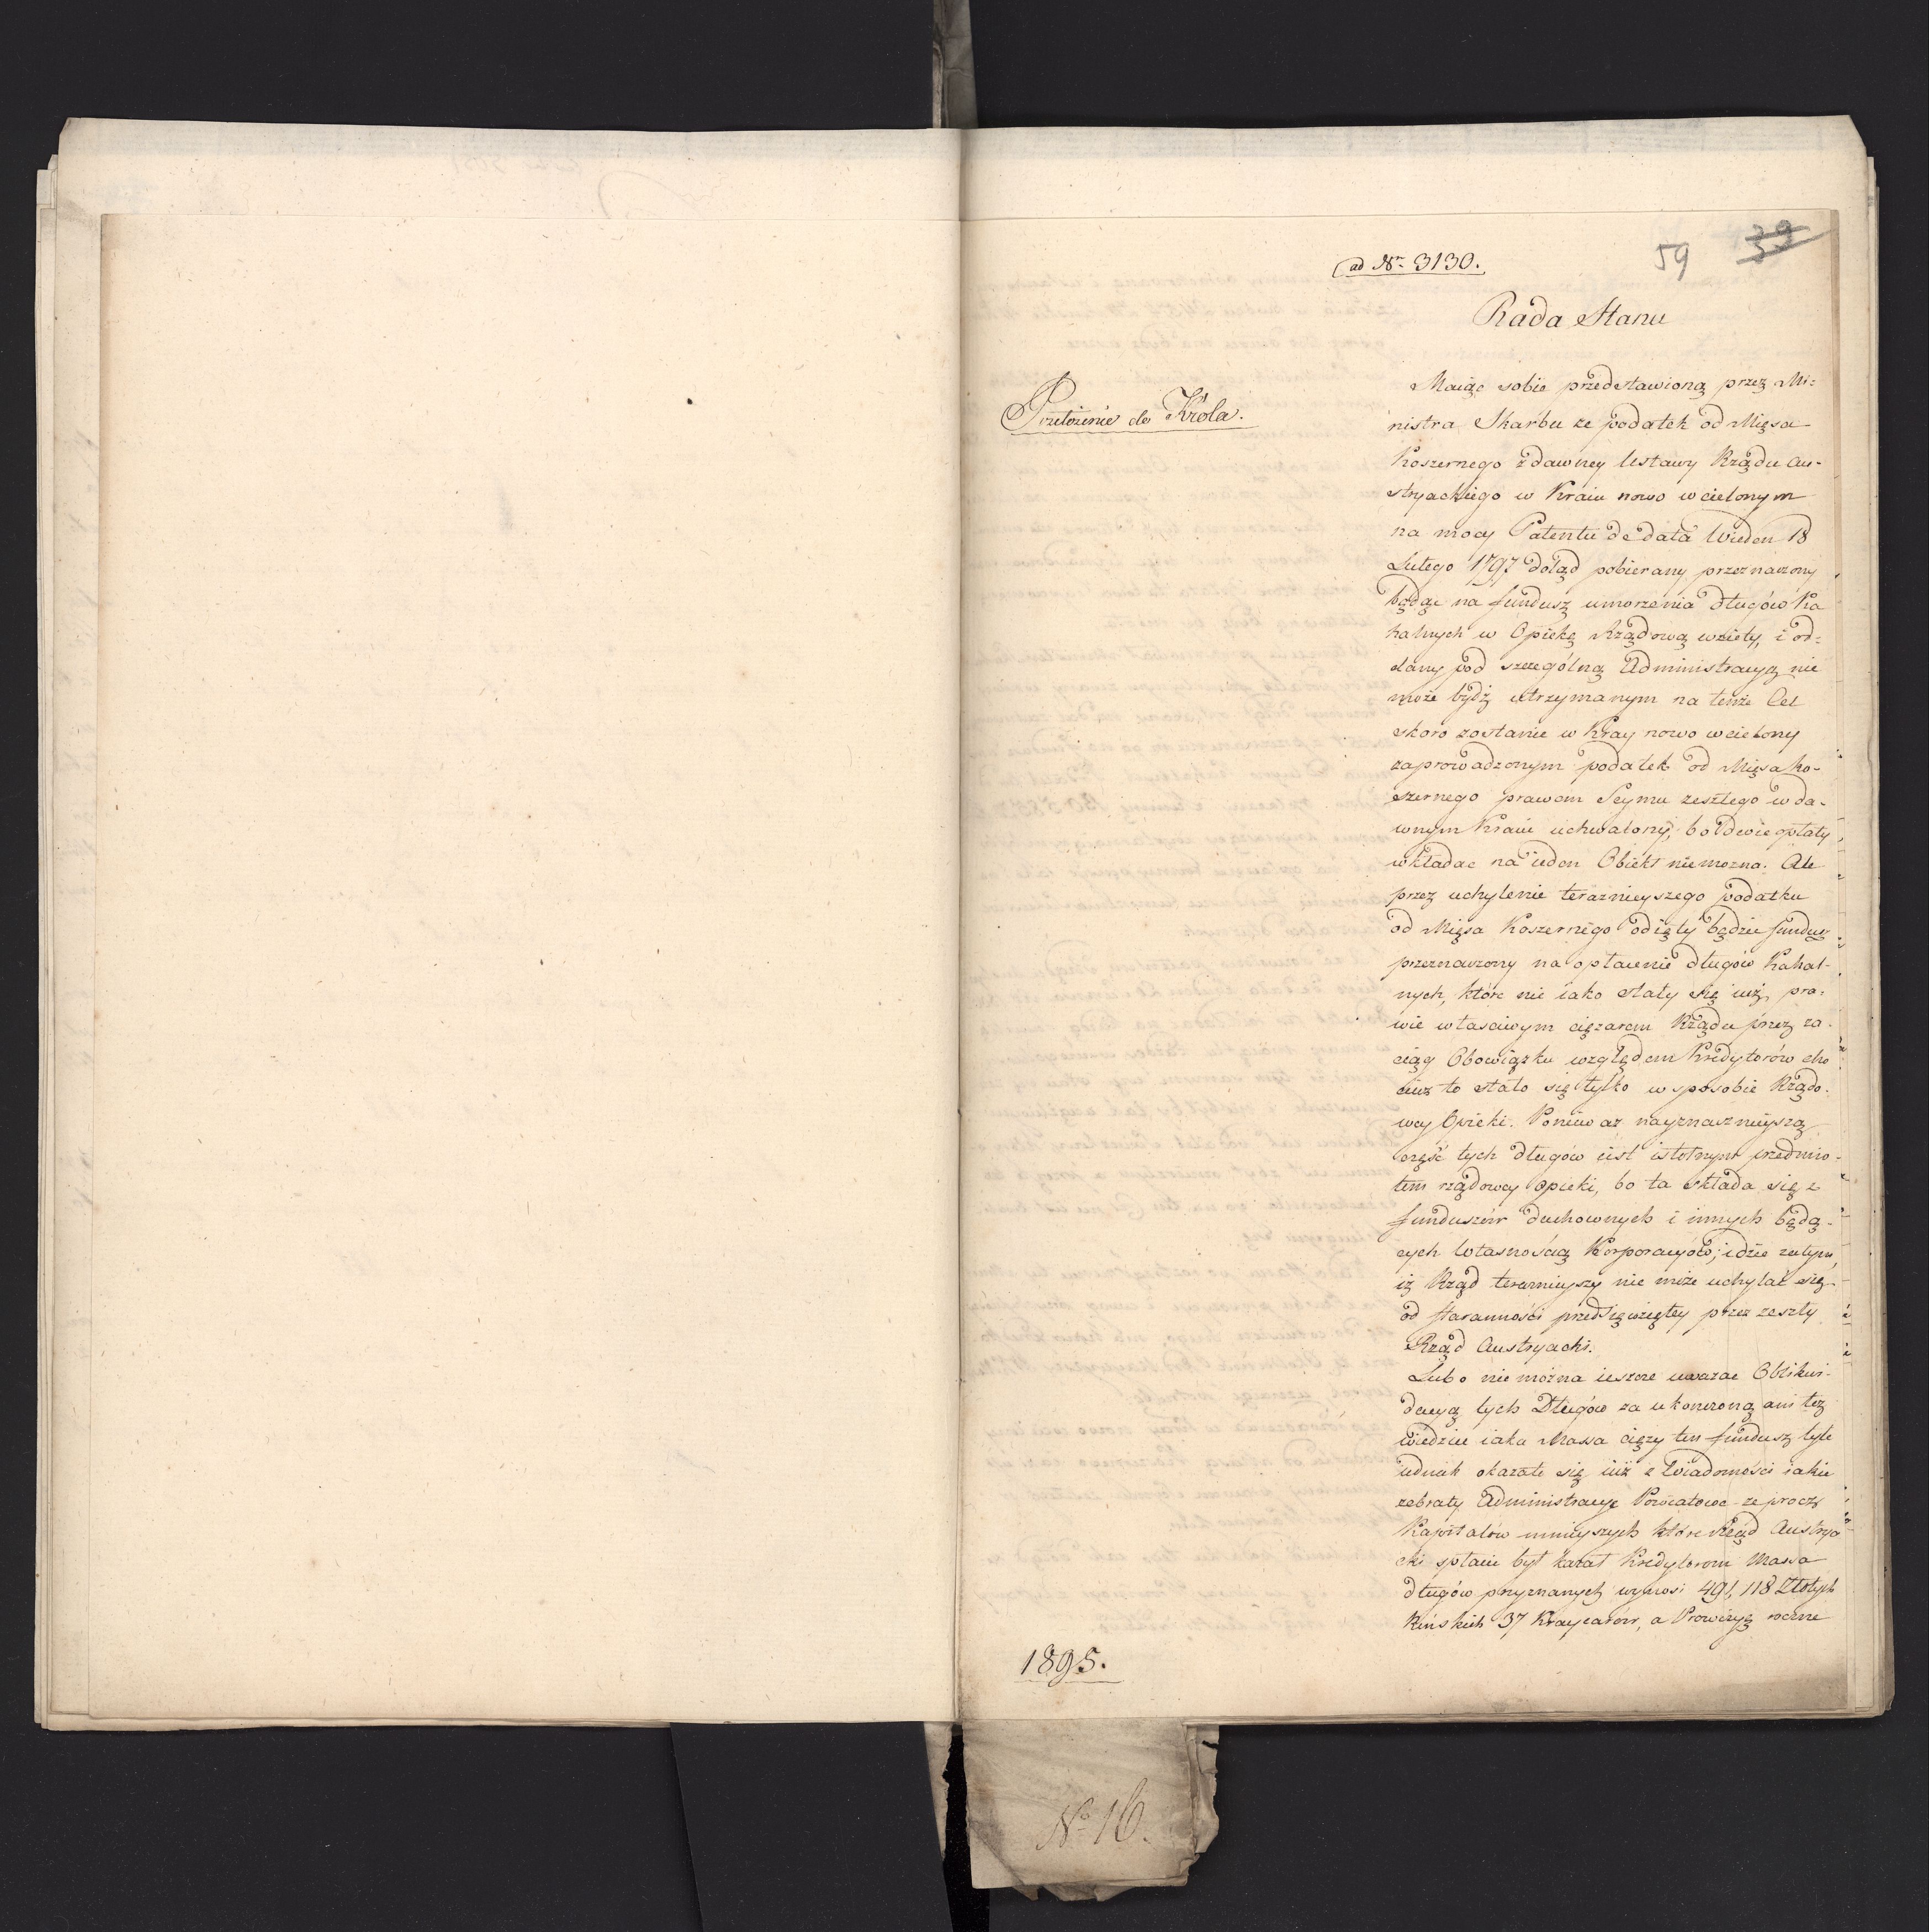 ad Nr. 3130.
59 39
Rada Stanu
Przełożenie do Króla.
Maiąc sobie przedstawioną przez Mi=
nistra Skarbu że podatek od Mięsa
Koszernego z dawney Ustawy Rządu Au-
stryackiego w Kraiu nowo wcielonym
na mocy Patentu de data Wieden 18
Lutego 1797 dotąd pobierany, przeznaczony
będąc na fundusz umorzenia długów Ka
halnych w Opiekę Rządową wzięty, i od=
dany pod szczególną Administracyą nie
może bydź utrzymanym na tenże Cel
skoro zostanie w Kray nowo wcielony
zaprowadzonym podatek od Mięsa ko-
szernego prawem Seymu zeszłego w da-
wnym Kraiu uchwalony, bo dwie opłaty
wkładac na ieden Obiekt niemozna. Ale
przez uchylenie teraznieyszego podatku
od Mięsa Koszernego odięty będzie fundusz
przeznaczony na opłacenie długów Kahal-
nych, które nie iako stały się iuż pra=
wie własciwym ciężarem Rządu przez za-
ciąg Obowiązku względem Kredytorów cho
ciuż to stało się tylko w sposobie Rządo-
wey Opieki. Poniewaz nayznacznieyszą
część tych długów iest istotnym przedmio-
tem rządowey opieki, bo ta składa się z
funduszów duchownych i innych będą-
cych Własnością Korporacyów; idzie zatym,
iż Rząd teraznieyszy nie może uchylać się
od staranności przedsięwziętey przez zeszły
Rząd Austryacki.
Lubo nie można ieszcze uwazac Oblikwi-
dacyą tych Długów za ukonczoną ani też
wiedziec iaka Massa cięży ten fundusz tyle
iednak okazało się iuż z Wiadomości iakie
zebrały Administracye Powiatowe że procz
Kapitałów mnieyszych które Rząd Austrya
cki spłacic był kazał Kredytorom Massa
długów przyznanych wynosi 491,118 Złotych
Rińskich 37 Kraycarów, a Prowizyą roczne
1895.
No 16.